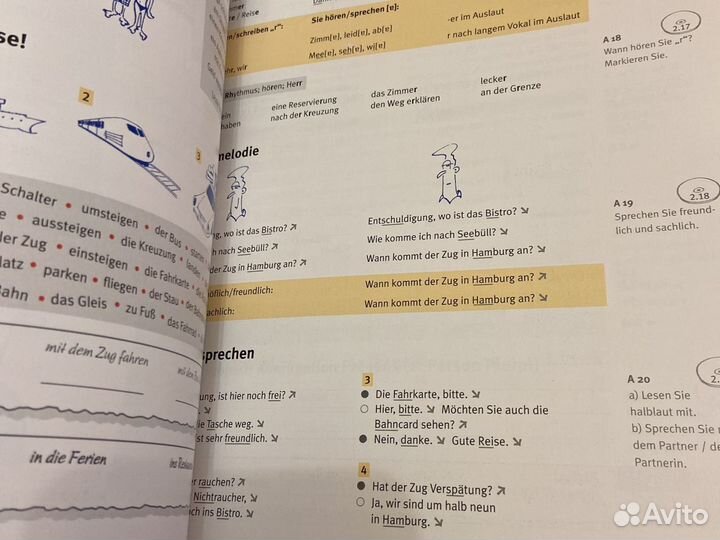 se!
2
3
Schalter • umsteigen • der Bus •
• aussteigen • die Kreuzung •
der Zug • einsteigen • die Fahrkarte •
• parken • fliegen • der Stau •
Bahn • das Gleis • zu Fuß • das Fahrrad
mit dem Zug fahren
in die Ferien
/ Reise
en/schreiben „r“:
Sie hören/sprechen [ɐ]:
Zimm[ɐ], leid[ɐ], ab[ɐ]
-er im Auslaut
ehr, wir
Mee[ɐ], seh[ɐ], wi[ɐ]
r nach langem Vokal im Auslaut
Rhythmus; hören; Herr
eine Reservierung
das Zimmer
lecker
haben
nach der Kreuzung
den Weg erklären
an der Grenze
melodie
ng, wo ist das Bistro? ↗
Entschuldigung, wo ist das Bistro? ↘
nach Seebüll? ↗
Wie komme ich nach Seebüll? ↘
der Zug in Hamburg an? ↗
Wann kommt der Zug in Hamburg an? ↘
öflich/freundlich:
Wann kommt der Zug in Hamburg an? ↗
achlich:
Wann kommt der Zug in Hamburg an? ↘
sprechen
ung, ist hier noch frei? ↗
ie Tasche weg. ↘
st sehr freundlich. ↘
er rauchen? ↗
Nichtraucher, ↘
ch ins Bistro. ↘
3
● Die Fahrkarte, bitte. ↘
○ Hier, bitte. ↘ Möchten Sie auch die
Bahncard sehen? ↗
● Nein, danke. ↘ Gute Reise. ↘
4
● Hat der Zug Verspätung? ↗
○ Ja, wir sind um halb neun
in Hamburg. ↘
2.17
A 18
Wann hören Sie „r“?
Markieren Sie.
2.18
A 19
Sprechen Sie freund-
lich und sachlich.
2.
A 20
a) Lesen Sie
halblaut mit.
b) Sprechen Sie
dem Partner / de
Partnerin.
Avito